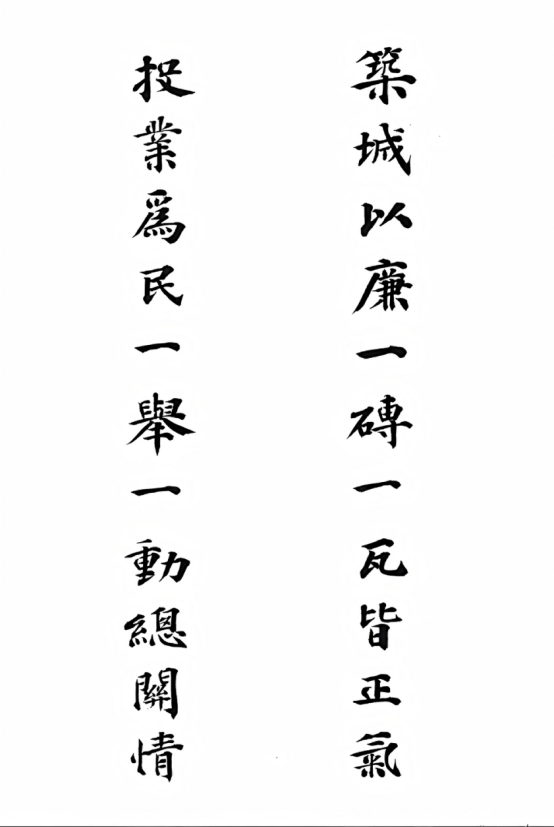 築城以廉一磚一瓦皆正氣
投業為民一舉一動總關情